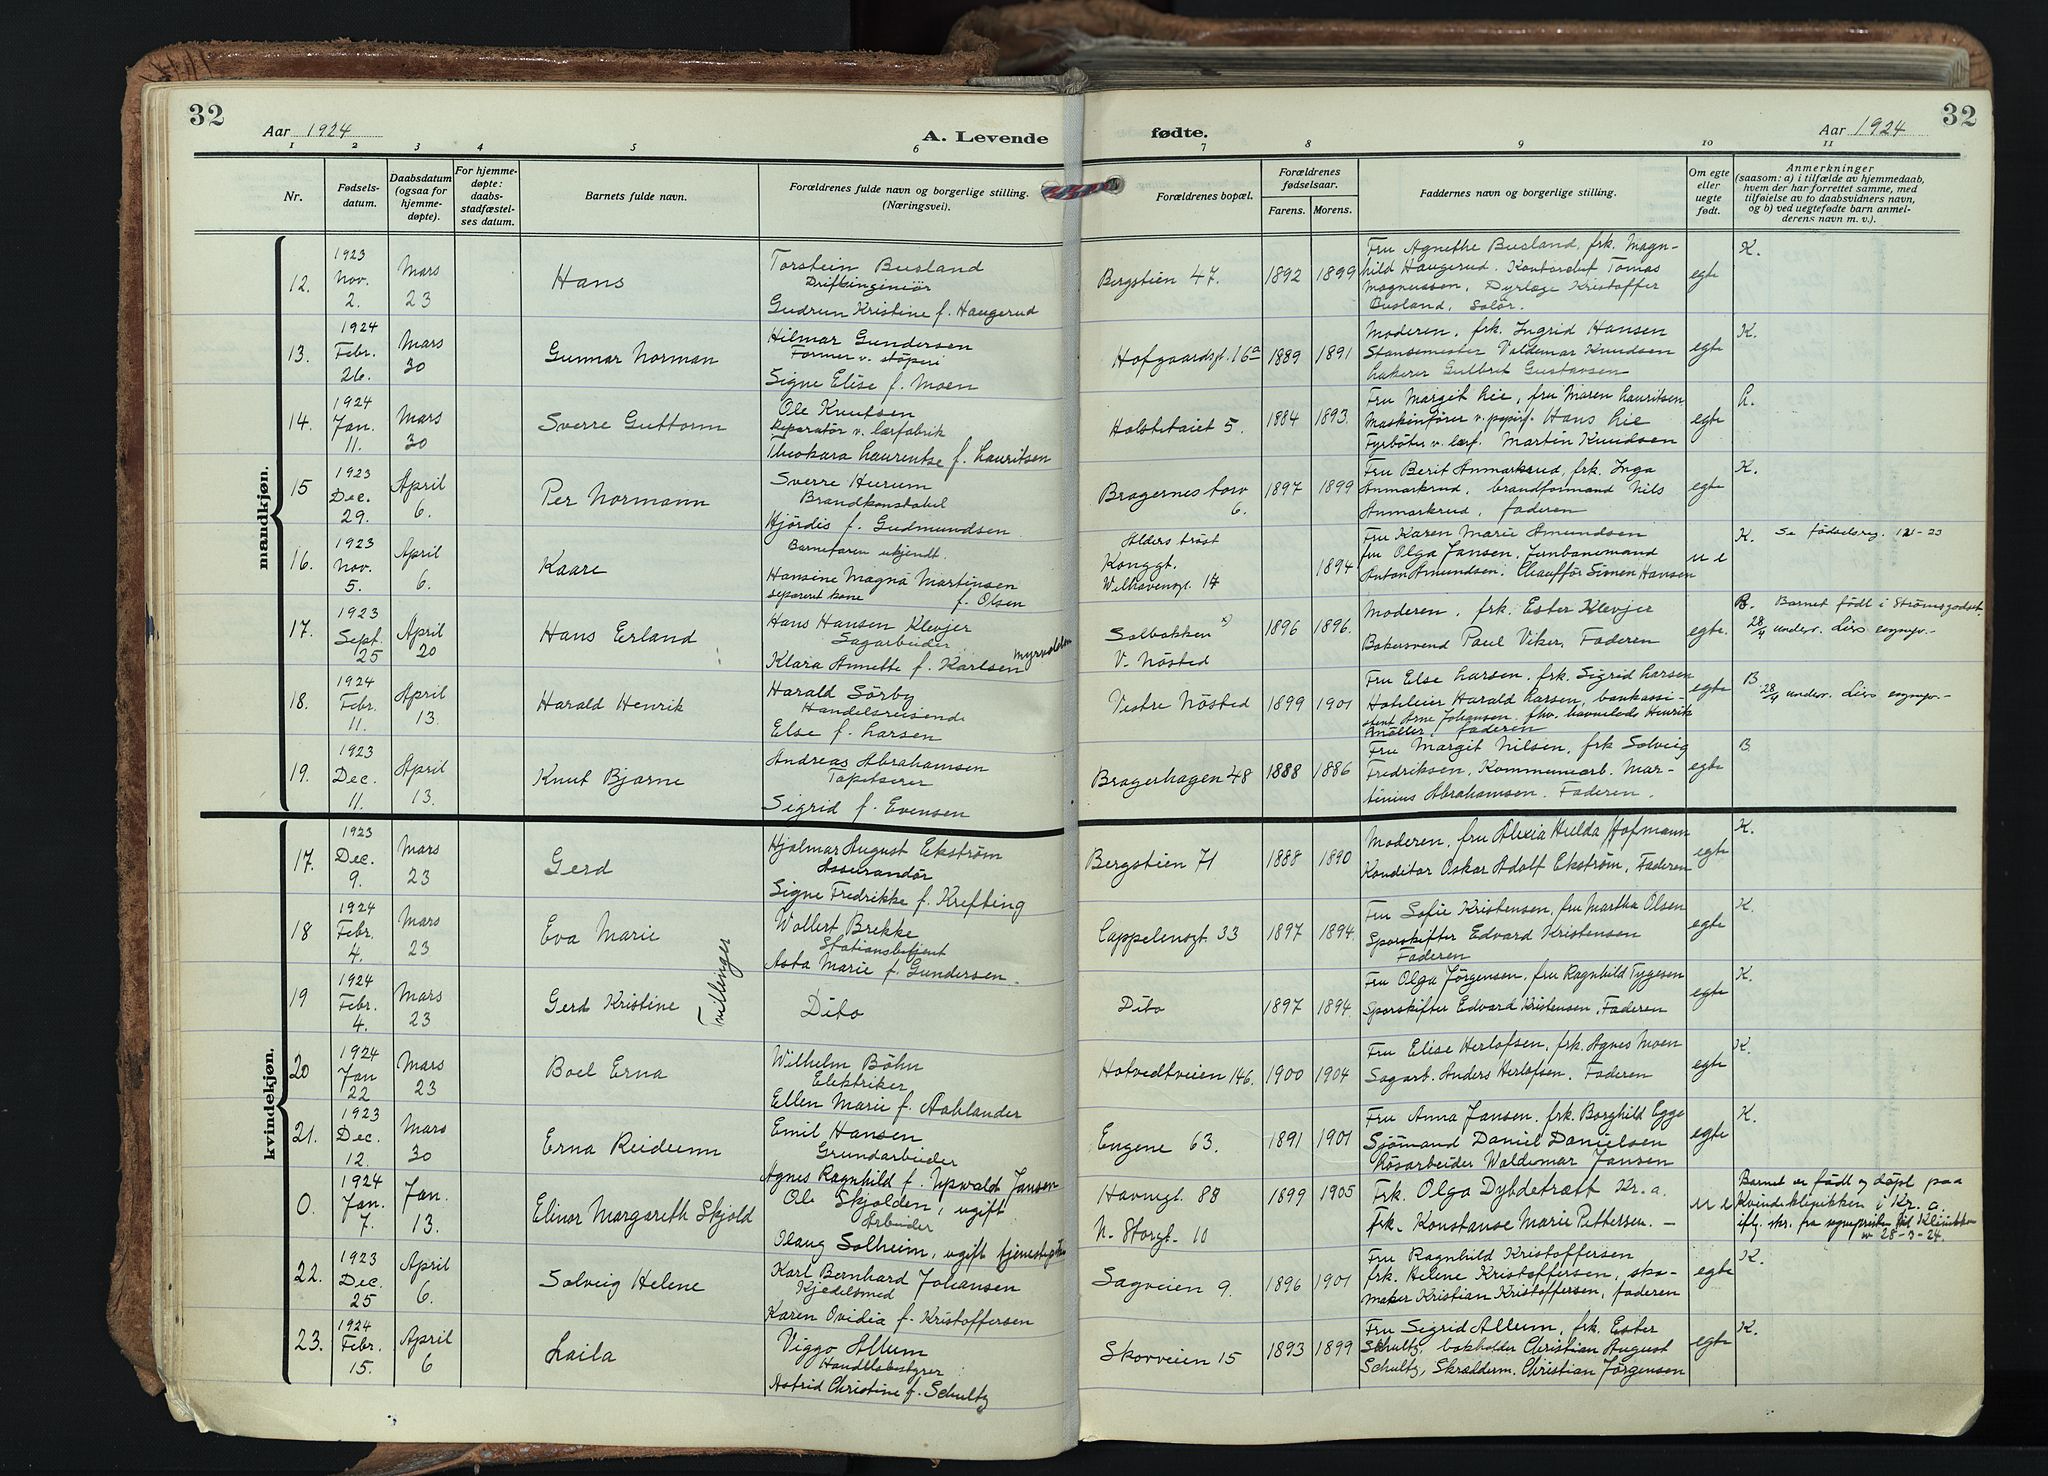 32
Aar 1924
A. Levende
fødte.
Aar 1924
32
1 2 3 4 5 6 7 8 9 10 11
Nr.
Fødsels-
datum.
Daabsdatum
(ogsaa for
hjemme-
døpte).
For hjemme-
døpte:
daabs-
stadfæstel-
ses datum.
Barnets fulde navn.
Forældrenes fulde navn og borgerlige stilling.
(Næringsvei).
Forældrenes bopæl.
Forældrenes
fødselsaar.
Farens. Morens.
Faddernes navn og borgerlige stilling.
Om egte
eller
uegte
født.
Anmerkninger
(saasom: a) i tilfælde av hjemmedaab,
hvem der har forrettet samme, med
tilføielse av to daabsvidners navn,
og b) ved uegtefødte barn anmel-
derens navn m. v.).
mandkjøn.
12. 1923 Nov. 2. Mars 23 Hans
Torstein Busland
Driftsingeniör
Gudrun Kristine f. Haugerud
Bergstien 47. 1892 1899
Fru Agnethe Busland, frk. Magn-
hild Haugerud. Kontorchef Tomas
Magnussen, Dyrlæge Kristoffer
Busland, Solör.
egte K.
13. 1924 Febr. 26. Mars 30 Gunnar Norman
Hilmar Gundersen
Former v. støperi
Signe Elise f. Moen
Hofgaardsgt. 16a 1889 1891
Moderen, frk. Ingrid Hansen
Stansemester Valdemar Knudsen
Lakerer Gulbrit Gustavsen
egte K.
14. 1924 Jan. 11. Mars 30 Sverre Guttorm
Ole Knutsen
Reparatör v. lærfabrik
Theokara Laurentse f. Lauritsen
Holstetaiet 5. 1884 1893.
Fru Margit Lie, fru Maren Lauritsen
Maskinförer v. papirf. Hans Lie
Fyrböter v. lærf. Martin Knudsen
egte L.
15 1923 Dec. 29. April 6. Per Normann
Sverre Hurum
Brandkonstabel
Hjördis f. Gudmundsen.
Bragernes torv 6. 1897 1899
Fru Berit Anmarkrud, frk. Inga
Anmarkrud, brandformand Nils
Anmarkrud, faderen
egte K.
16. 1923 Nov. 5. April 6. Kaare
Barnefaren ukjendt.
Hansine Magna Martinsen
separert kone f. Olsen
Alders tröst
Konggt.
Welhavensgt. 14 1894
Fru Karen Marie Amundsen
fru Olga Jansen, Jernbanemand
Anton Amundsen. Chaufför Simen Hansen
u e K. Se födselsreg. 121-23
17. 1923 Sept. 25 April 20 Hans Erland
Hans Hansen Klevjer
Sagarbeider
Klara Annette f. Karlsen Myrvolden
Solbakken x)
V. Nösted 1896 1896.
Moderen, frk. Ester Klevjer
Bakersvend Paul Viker, Faderen
egte. B. Barnet födt i Strömsgodset.
28/4 underr. Liers sognepr.-
18. 1924 Febr. 11. April 13. Harald Henrik
Harald Sörby
Handelsreisende
Else f. Larsen
Vestre Nösted 1899 1901
Fru Else Larsen, frk. Sigrid Larsen
Hoteleier Harald Larsen, bankassi-
stent Arne Johansen, fhv. havnelods Henrik
Möller, faderen
egte B 28/4 underr. Liers sognepr.-
19. 1923 Dec. 11. April 13. Knut Bjarne
Andreas Abrahamsen
Tapetserer
Sigrid f. Evensen
Bragerhagen 48 1888 1886
Fru Margit Nilsen, frk Solveig
Fredriksen, Kommunearb. Mar-
tinius Abrahamsen. Faderen.
egte B
kvindekjøn.
17. 1923 Dec. 9. Mars 23 Gerd
Hjalmar August Ekström
Assurandör
Signe Fredrikke f. Krefting
Bergstien 71 1888 1890
Moderen, fru Alexia Hulda Hofmann
Konditor Oskar Adolf Ekström, Faderen
egte K.
18 1924 Febr. 4. Mars 23 Eva Marie
Tvillinger
Wollert Brekke
Stationsbetjent
Asta Marie f. Gundersen.
Cappelensgt. 33 1897 1894.
Fru Sofie Kristensen, fru Martha Olsen
Sporskifter Edvard Kristensen
Faderen
egte K.
19 1924 Febr. 4. Mars 23 Gerd Kristine
Dito
Dito 1897 1894.
Fru Olga Jørgensen, fru Ragnhild Tygesen
Sporskifter Edvard Kristensen, Faderen
egte K.
20 1924 Jan 22 Mars 23 Boel Erna
Wilhelm Böhn
Elektriker
Ellen Marie f. Aahlander
Hotvedtveien 146. 1900 1904
Fru Elise Herlofsen, frk. Agnes Moen
Sagarb. Anders Herlofsen. Faderen
egte K.
21. 1923 Dec. 12. Mars 30 Erna Reidunn
Emil Hansen
Grundarbeider
Agnes Ragnhild f. Upwald Jansen
Eugene 63. 1891 1901
Fru Anna Jansen, frk. Borghild Egge
Sjömand Daniel Danielsen
Rösarbeider Waldemar Jansen
egte K.
0. 1924 Jan. 7. Jan. 13. Elinor Margareth Skjold
Ole Skjolden, ugift
Arbeider
Olaug Solheim, ugift tjenestepike
Havnegt. 88
N. Storgt. 10 1899 1905
Frk. Olga Dybdetrætt Kr.a.
Frk. Konstanse Marie Pettersen. -
u e Barnet er födt og döpt paa
Kvindeklinikken i Kr.a.
ifg. skr. fra sognepresten til Klinikken
av 28-3-24.
22. 1923 Dec. 25 April 6. Solveig Helene
Karl Bernhard Johansen
Kjedelsmed
Karen Ovidia f. Kristoffersen
Sagveien 9. 1896 1901
Fru Ragnhild Kristoffersen
frk. Helene Kristoffersen, sko-
maker Kristian Kristoffersen, faderen
egte K.
23. 1924 Febr. 15. April 6 Laila
Viggo Allum
Handelsbestyrer
Astrid Christine f. Schultz
Skorveien 15 1893 1899
Fru Sigrid Allum, frk. Ester
Schultz, bokholder Christian August
Schultz, Skrædderm. Christian Jörgensen
egte K.